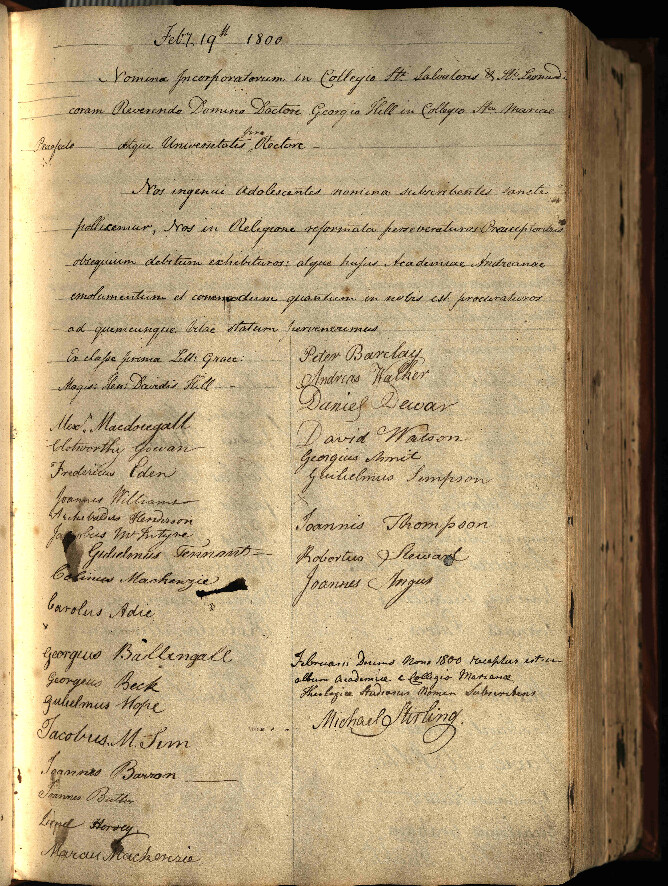 Feby 19th 1800
Nomina Incorporatorum in Collegio Sti Salvatoris & Sti Leonardi
coram Reverendo Domino Doctore Georgio Hill in Collegio Stae Mariae
Praefecto atque Universitatis pro Rectore
Nos ingenui adolescentes nomina subscribentes sancte
pollicemur, Nos in Religione reformata perseveraturos Praeceptoribus
obsequium debitum exhibituros: atque hujus Academiae Andreanae
emolumentum et commodum quantum in nobis est procuraturos
ad quemcunque Vitae statum pervenerimus
Ex classe prima Litt: Graec:
Magis: Hen: Davidis Hill
Alexr Macdougall
Clotworthy Gowan
Fredericus Eden
Joannes Williamson
Archibaldus Henderson
Jacobus McIntyre
Gulielmus Tennant
Colinus Mackenzie
Carolus Adie
Georgius Ballingall
Georgius Beck
Gulielmus Hope
Jacobus M. Sim
Joannes Barron
Joannes Butler
Lionel Hervey
Mackenzie
Peter Barclay
Andreas Walker
Daniel Dewar
David Watson
Georgius
Guilielmus Simpson
Joannis Thompson
Robertus Stewart
Joannes Angus
Februarii Decimo Nono 1800 receptus est in
album Academiae e Collegio Mariano
Theologiae Studiosus Nomen Subscribens
Michael Stirling.